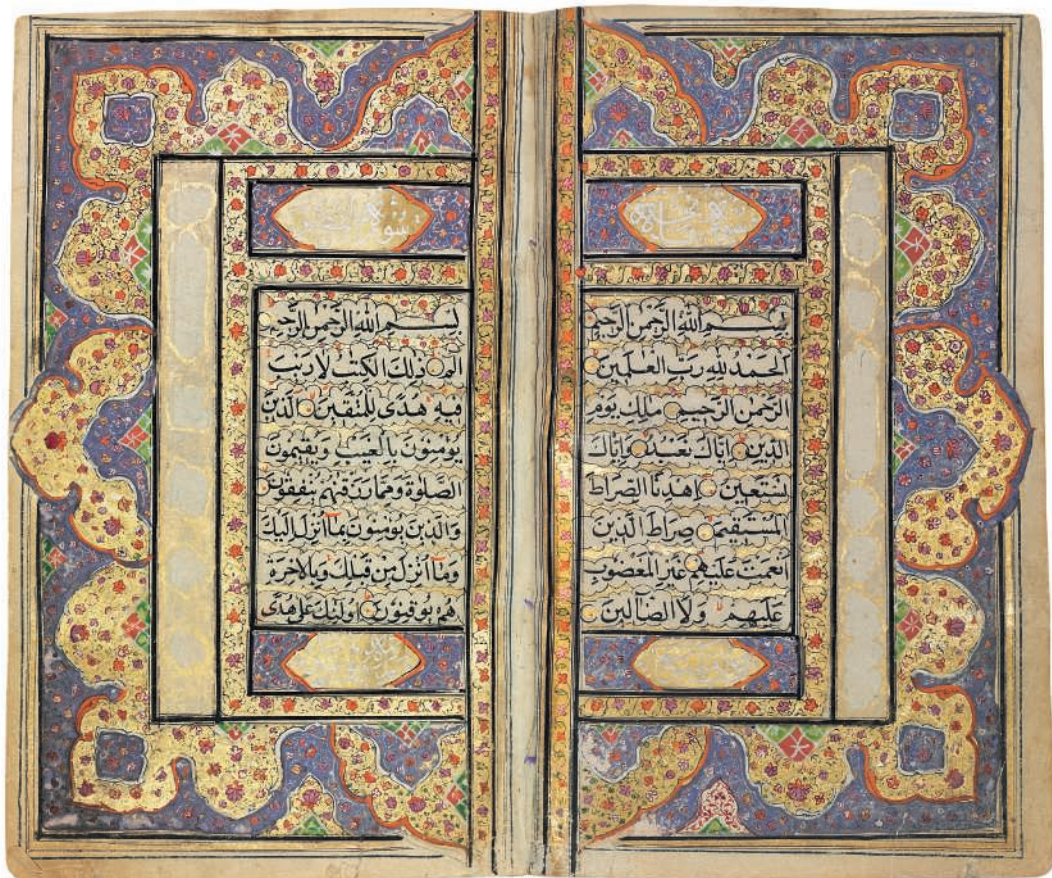 سورة
بِسْمِ اللهِ الرَّحْمٰنِ الرَّحِيْمِ
اَلْحَمْدُ لِلّٰهِ رَبِّ الْعٰلَمِيْنَ
الرَّحْمٰنِ الرَّحِيْمِ مٰلِكِ يَوْمِ
الدِّيْنِ اِيَّاكَ نَعْبُدُ وَاِيَّاكَ
نَسْتَعِيْنُ اِهْدِنَا الصِّرَاطَ
الْمُسْتَقِيْمَ صِرَاطَ الَّذِيْنَ
اَنْعَمْتَ عَلَيْهِمْ غَيْرِ الْمَغْضُوْبِ
عَلَيْهِمْ وَلَا الضَّآلِّيْنَ
سورة
بِسْمِ اللهِ الرَّحْمٰنِ الرَّحِيْمِ
الٓمّٓ ذٰلِكَ الْكِتٰبُ لَا رَيْبَ
فِيْهِ هُدًى لِّلْمُتَّقِيْنَ الَّذِيْنَ
يُؤْمِنُوْنَ بِالْغَيْبِ وَيُقِيْمُوْنَ
الصَّلٰوةَ وَمِمَّا رَزَقْنٰهُمْ يُنْفِقُوْنَ
وَالَّذِيْنَ يُؤْمِنُوْنَ بِمَآ اُنْزِلَ اِلَيْكَ
وَمَآ اُنْزِلَ مِنْ قَبْلِكَ وَبِالْاٰخِرَةِ
هُمْ يُوْقِنُوْنَ اُولٰٓئِكَ عَلٰى هُدًى